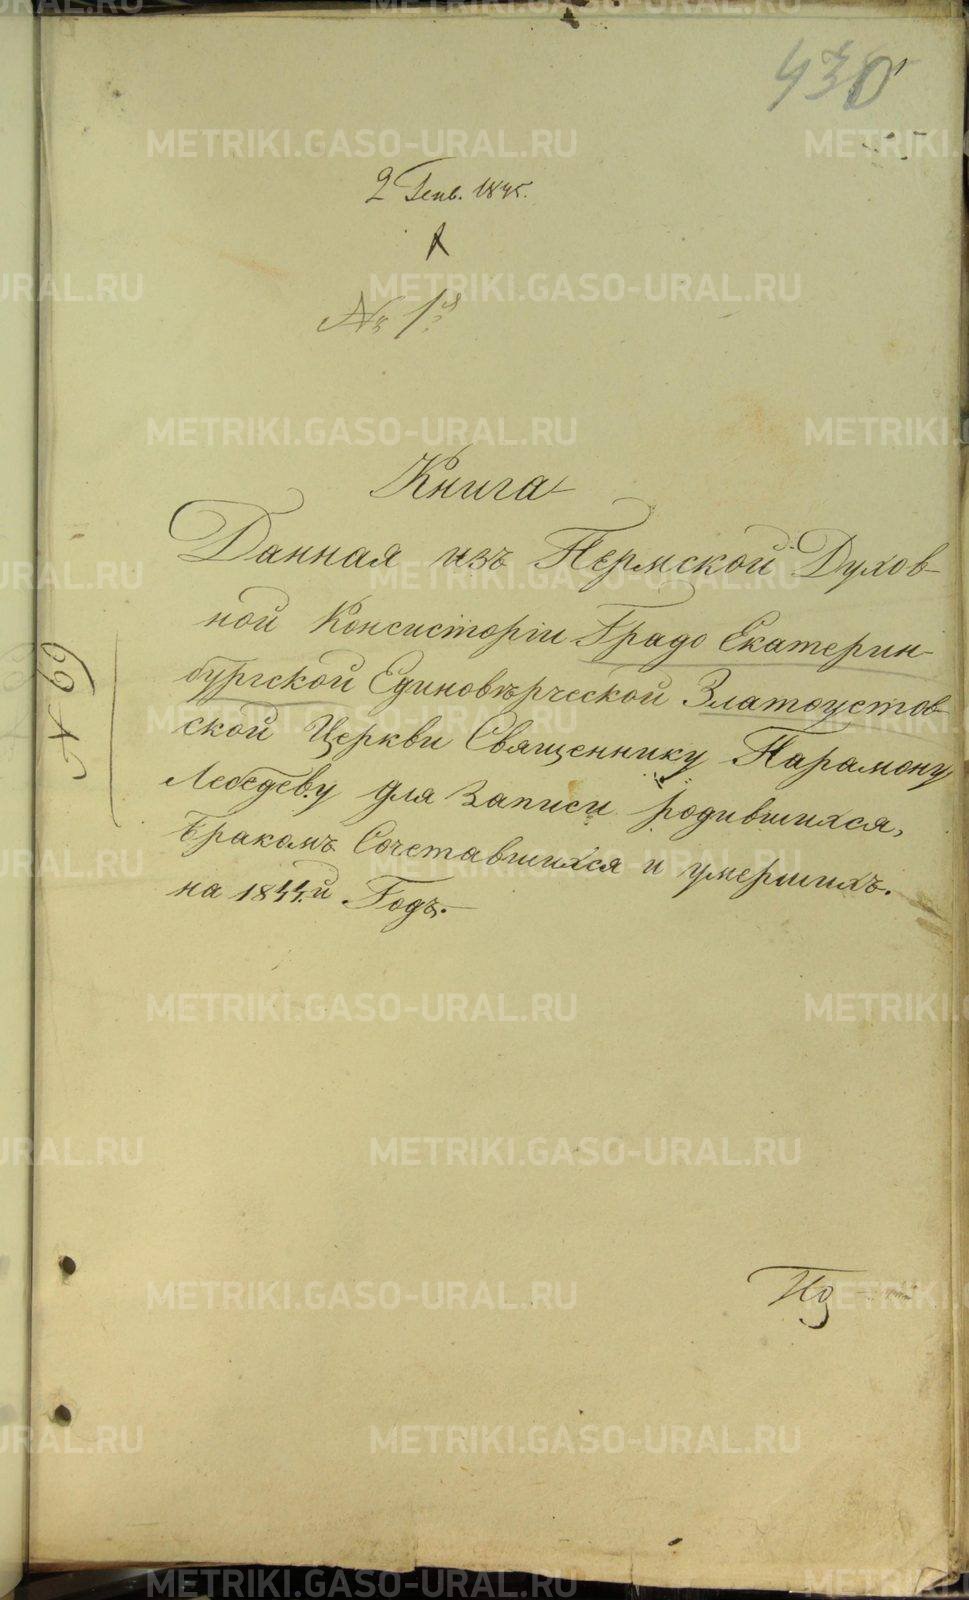 430
2 Генв. 1845.
№ 1й
Книга
Данная изъ Пермской Духов-
ной Консисторіи Градо Екатерин-
бургской Единовѣрческой Златоустов-
ской Церкви Священнику Парамону
Лебедеву для записи родившихся,
бракомъ Сочетавшихся и умершихъ.
на 1844й Годъ.
№ 69
METRIKI.GASO-URAL.RU